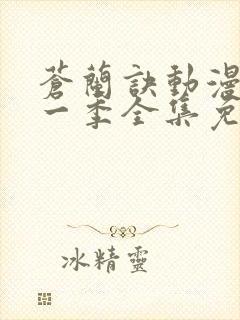 蒼蘭訣動漫
一季全集免
冰精靈